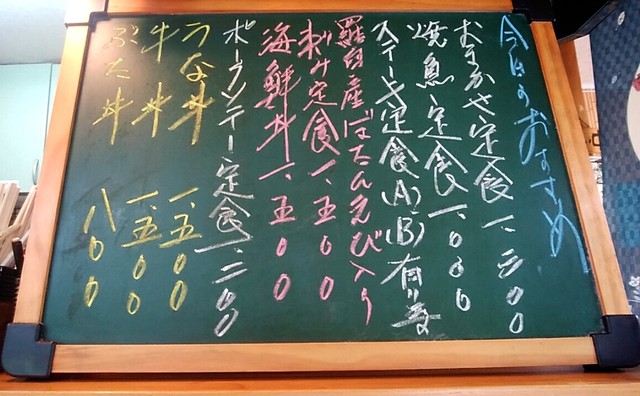 今日のおすすめ
おまかせ定食 一、三〇〇
焼魚定食 一、〇〇〇
ステーキ定食(A)(B)有り〼
羅臼産ぼたんえび入り
刺み定食 一、五〇〇
海鮮丼 一、五〇〇
ポークソテー定食 一、二〇〇
うな丼 一、五〇〇
牛丼 一、五〇〇
ぶた丼 八〇〇